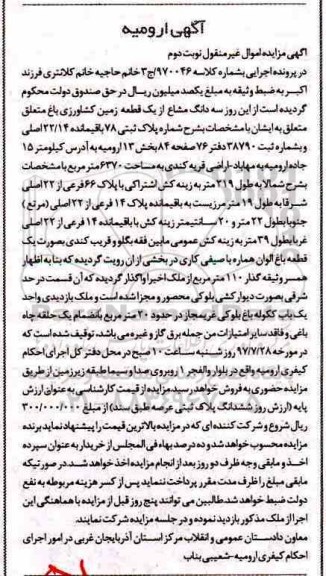 آگهی ارومیه
آگهی مزایده اموال غیر منقول نوبت دوم
در پرونده اجرایی بشماره کلاسه ۹۷۰۰۴۶/ج۳ خانم حاجیه خانم کلانتری فرزند
اکبر به ضبط وثیقه به مبلغ یکصد میلیون ریال در حق صندوق دولت محکوم
گردیده است از این رو سه دانگ مشاع از یک قطعه زمین کشاورزی باغ متعلق
متعلق به ایشان با مشخصات بشرح شماره پلاک ثبتی ۷۸ باقیمانده ۲۲/۱۴ اصلی
و بشماره ثبت ۳۸۷۹۰ دفتر ۷۶ صفحه ۸۴ بخش ۱۳ ارومیه به آدرس کیلومتر ۱۵
جاده ارومیه به مهاباد-اراضی قریه کندی به مساحت ۶۳۷۰ متر مربع با مشخصات
بشرح شمالا به طول ۲۱۹ متر به زینه کش اشتراکی با پلاک ۶۶ فرعی از ۲۲ اصلی
شرقا به طول ۱۹ متر مرزیست به باقیمانده پلاک ۱۴ فرعی از ۲۲ اصلی (مرتع)
جنوبا بطول ۲۲ متر و ۲۰ سانتیمتر زینه کش با باقیمانده ۱۴ فرعی از ۲۲ اصلی
غربا بطول ۳۹ متر به زینه کش عمومی مابین فقه بگلو و قریب کندی بصورت یک
قطعه باغ الوان همراه با صیفی کاری در بخشی از آن رویت گردیده که بنا به اظهار
همسر وثیقه گذار ۱۱۰ متر مربع از ملک اخیرا واگذار گردیده که آن قسمت در حد
شرقی بصورت دیوار کشی بلوکی محصور و مجزا شده است و ملک بازدیدی واحد
یک باب ککوله باغ بلوکی غیرمجاز در حدود ۲۰ متر مربع بانضمام یک حلقه چاه
باغی و فاقد سایر امتیازات من جمله برق گاز و غیره می باشد، توقیف شده است که
در مورخه ۹۷/۷/۲۸ روز شنبه ساعت ۱۰ صبح در محل دفتر کل اجرای احکام
کیفری ارومیه واقع در بلوار والفجر ۱ روبروی صدا و سیما طبقه زیرزمین از طریق
مزایده حضوری به فروش خواهد رسید مزایده از قیمت کارشناسی به عنوان ارزش
پایه (ارزش روز ششدانگ پلاک ثبتی عرصه طبق سند) از مبلغ ۳۰۰/۰۰۰/۰۰۰
ریال شروع و شرکت کننده ای که در مزایده بالاترین قیمت را پیشنهاد نماید برنده
مزایده محسوب خواهد شد و ده درصد بهاء فی المجلس از خریدار به عنوان سپرده
اخذ و مابقی وجه ظرف دو روز بعد از انجام مزایده اخذ خواهد شد. در صورتیکه
مابقی مبلغ را ظرف مدت مقرر پرداخت ننماید پس از کسر هزینه مربوطه به نفع
دولت ضبط خواهد شد طالبین می توانند پنج روز قبل از مزایده با هماهنگی این
اجرا از ملک مذکور بازدید نموده و در جلسه مزایده شرکت نمایند.
معاون دادستان عمومی و انقلاب مرکز استان آذربایجان غربی در امور اجرای
احکام کیفری ارومیه-شعیبی بناب